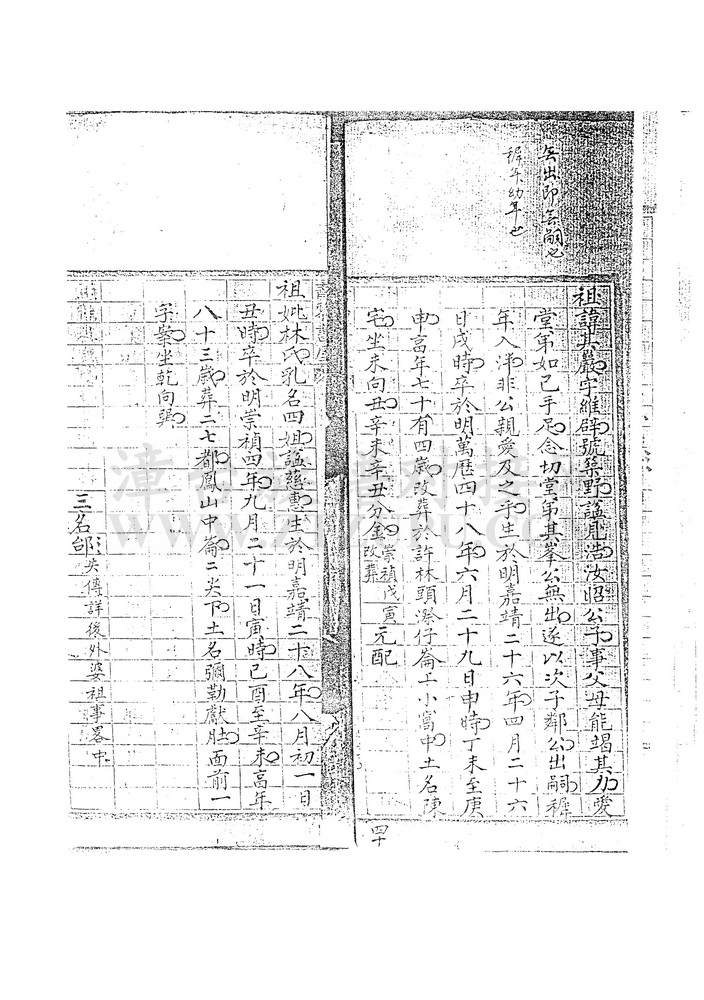 無出即無嗣也
稺年幼年也
祖諱其嚴字維辟號築野謚見浩汝昭公子事父母能竭其力愛
堂弟如已手足念切堂弟其峯公無出遂以次子鄰公出嗣稺
年入沸非公親愛及之手生於明嘉靖二十六年四月二十六
日戌時卒於明萬歷四十八年六月二十九日申時丁未至庚
申高年七十有四歲改葬於許林頭漈仔崙工小窩中土名陳
宅坐未向丑辛未辛丑分金崇禎戊寅改葬元配
四十
祖妣林氏乳名四姐謚慈惠生於明嘉靖二十八年八月初一日
丑時卒於明崇禎四年九月二十一日寅時己酉至辛未高年
八十三歲葬二七都鳳山中崙二尖下土名彌勒獻肚面前一
字案坐乾向巽
三名郎失傳詳後外婆祖事畧中